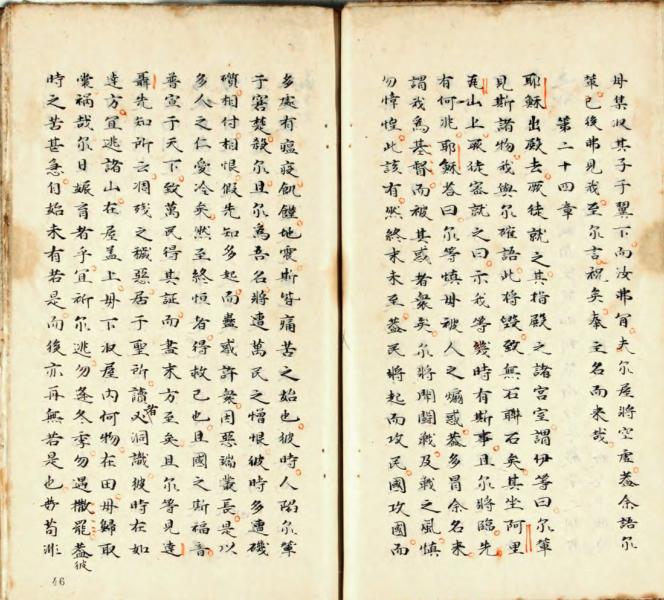 母集汝其子于翼下而汝弗肯夫尔屋將空虛蓋余語尔
葉已後弗見我至尔言祝矣奉主名而来哉
第二十四章
耶穌出殿去厥徒就之其指殿之諸宮室謂伊等曰尔軰
見斯諸物我與尔確語此將毀致無石聯石矣其坐阿里
瓦山上厥徒宻就之曰示我等幾時有斯事且尔將臨先
有何兆耶穌荅曰尔等慎毋被人之煽惑蓋多冒余名来
謂我為基督而被其或者衆矣尔將聞鬪戰及戰之風慎
勿惶惶此該有然終末未至蓋民將起而攻民國攻國而
多處有瘟疫飢饉地震斯皆痛苦之始也彼時人陷尔軰
于窘焚殺尔且尔為吾名將遭萬民之憎恨彼時多遭礙
躓相付相恨假先知多起而蠱惑許衆因惡端叢長是以
多人之仁愛冷矣然至終恒者得救已也且國之斯福音
普宣于天下致萬民得其証而盡末方至矣且尔等見達
聶先知所云凋殘之穢惡居于聖所讀者必洞識彼時在如
達方宜逃諸山在屋盖上毋下汲屋内何物在田毋歸取
裳禍哉尔日娠育者乎宜祈尔逃勿逢冬季勿遇撒罷蓋彼
時之苦甚急自始末有若是而後亦再無若是也苟非
46